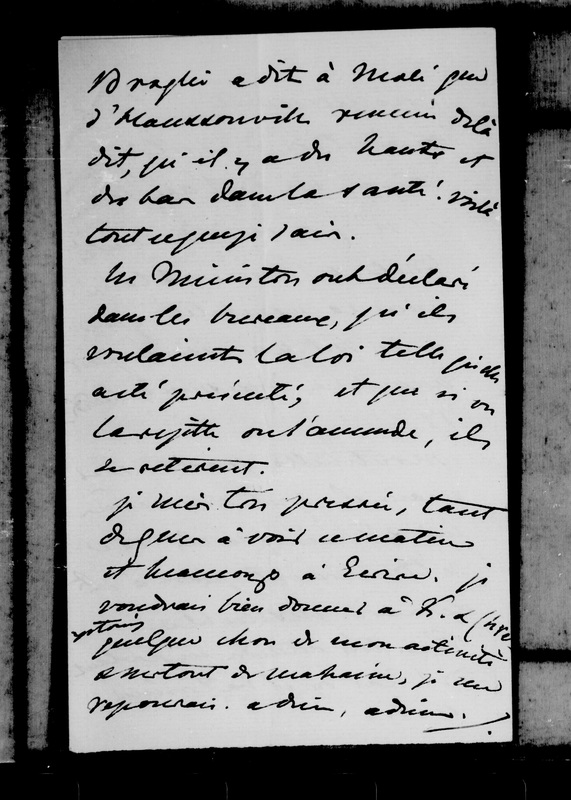 Broglie a dit à Molé que
d'Haussonville revenu de là
dit, qu'il y a des hauts et
des bas dans la santé. voilà
tout ce que je sais.
les Ministres ont déclaré
dans les bureaux, qu'ils
voulaient la loi telle qu'elle
a été présentée, et que si on
la rejette ou l'amende, ils
se retirent.
je suis très pressée, tant
de gens à voir ce matin
et beaucoup à Ecrire. je
voudrais bien donner à
quelque chose de mon activité
surtout de ma haine, je me
reposerais. adieu, adieu.